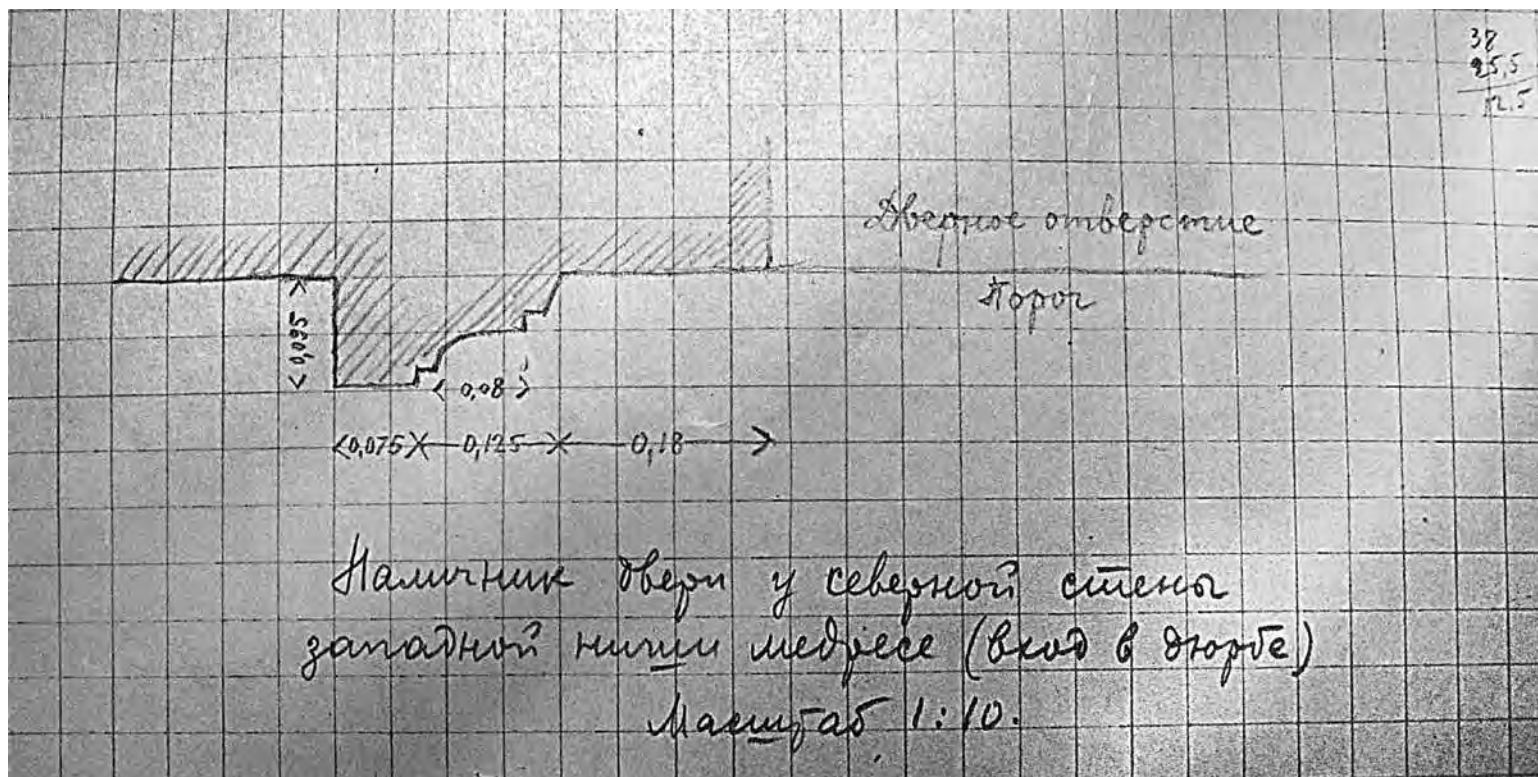 38
25,5
12.5
Дверное отверстие
Порог
0,095
0,08
0,075
0,125
0,18
Наличник двери у северной стены
западной ниши медресе (вход в дюрбе)
Масштаб 1:10.